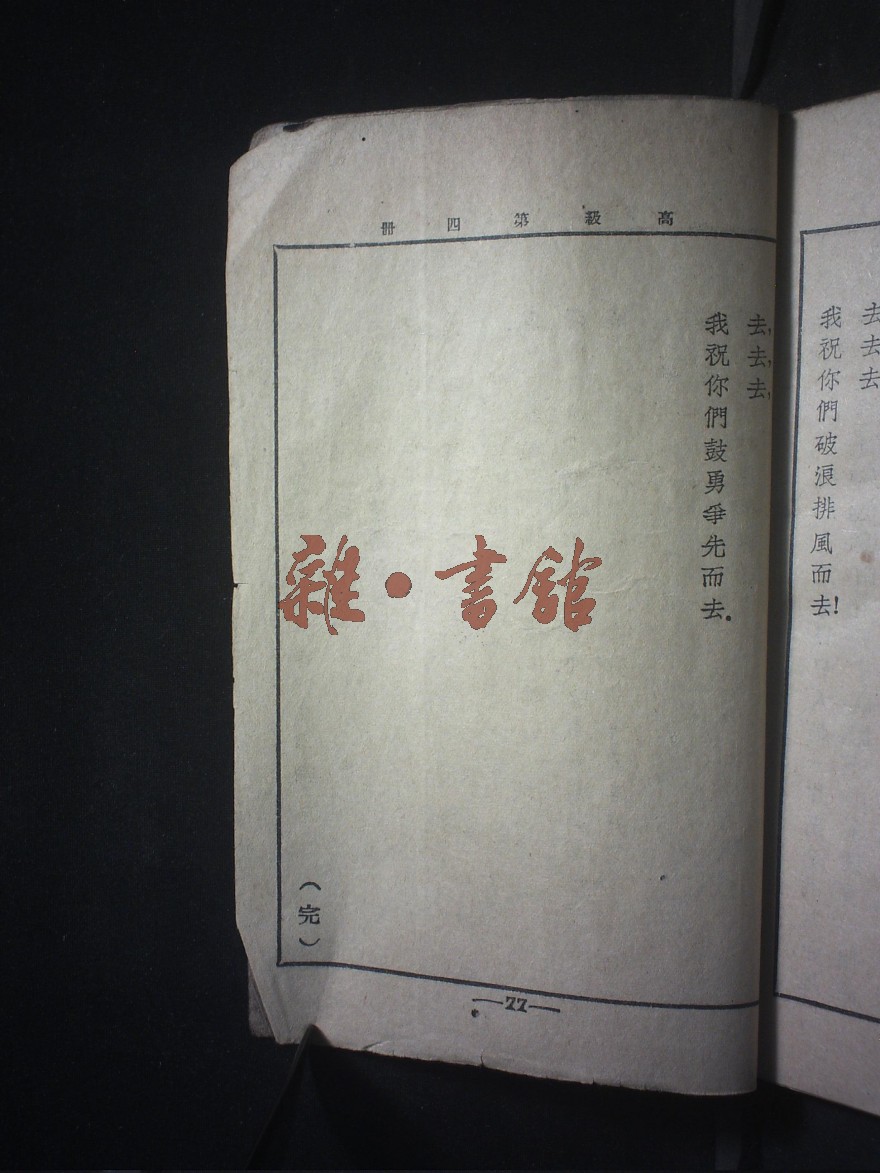 去去去
我祝你們破浪排風而去!
高級第四冊
去,去,去,
我祝你們鼓勇爭先而去.
(完)
—77—
雜•書館